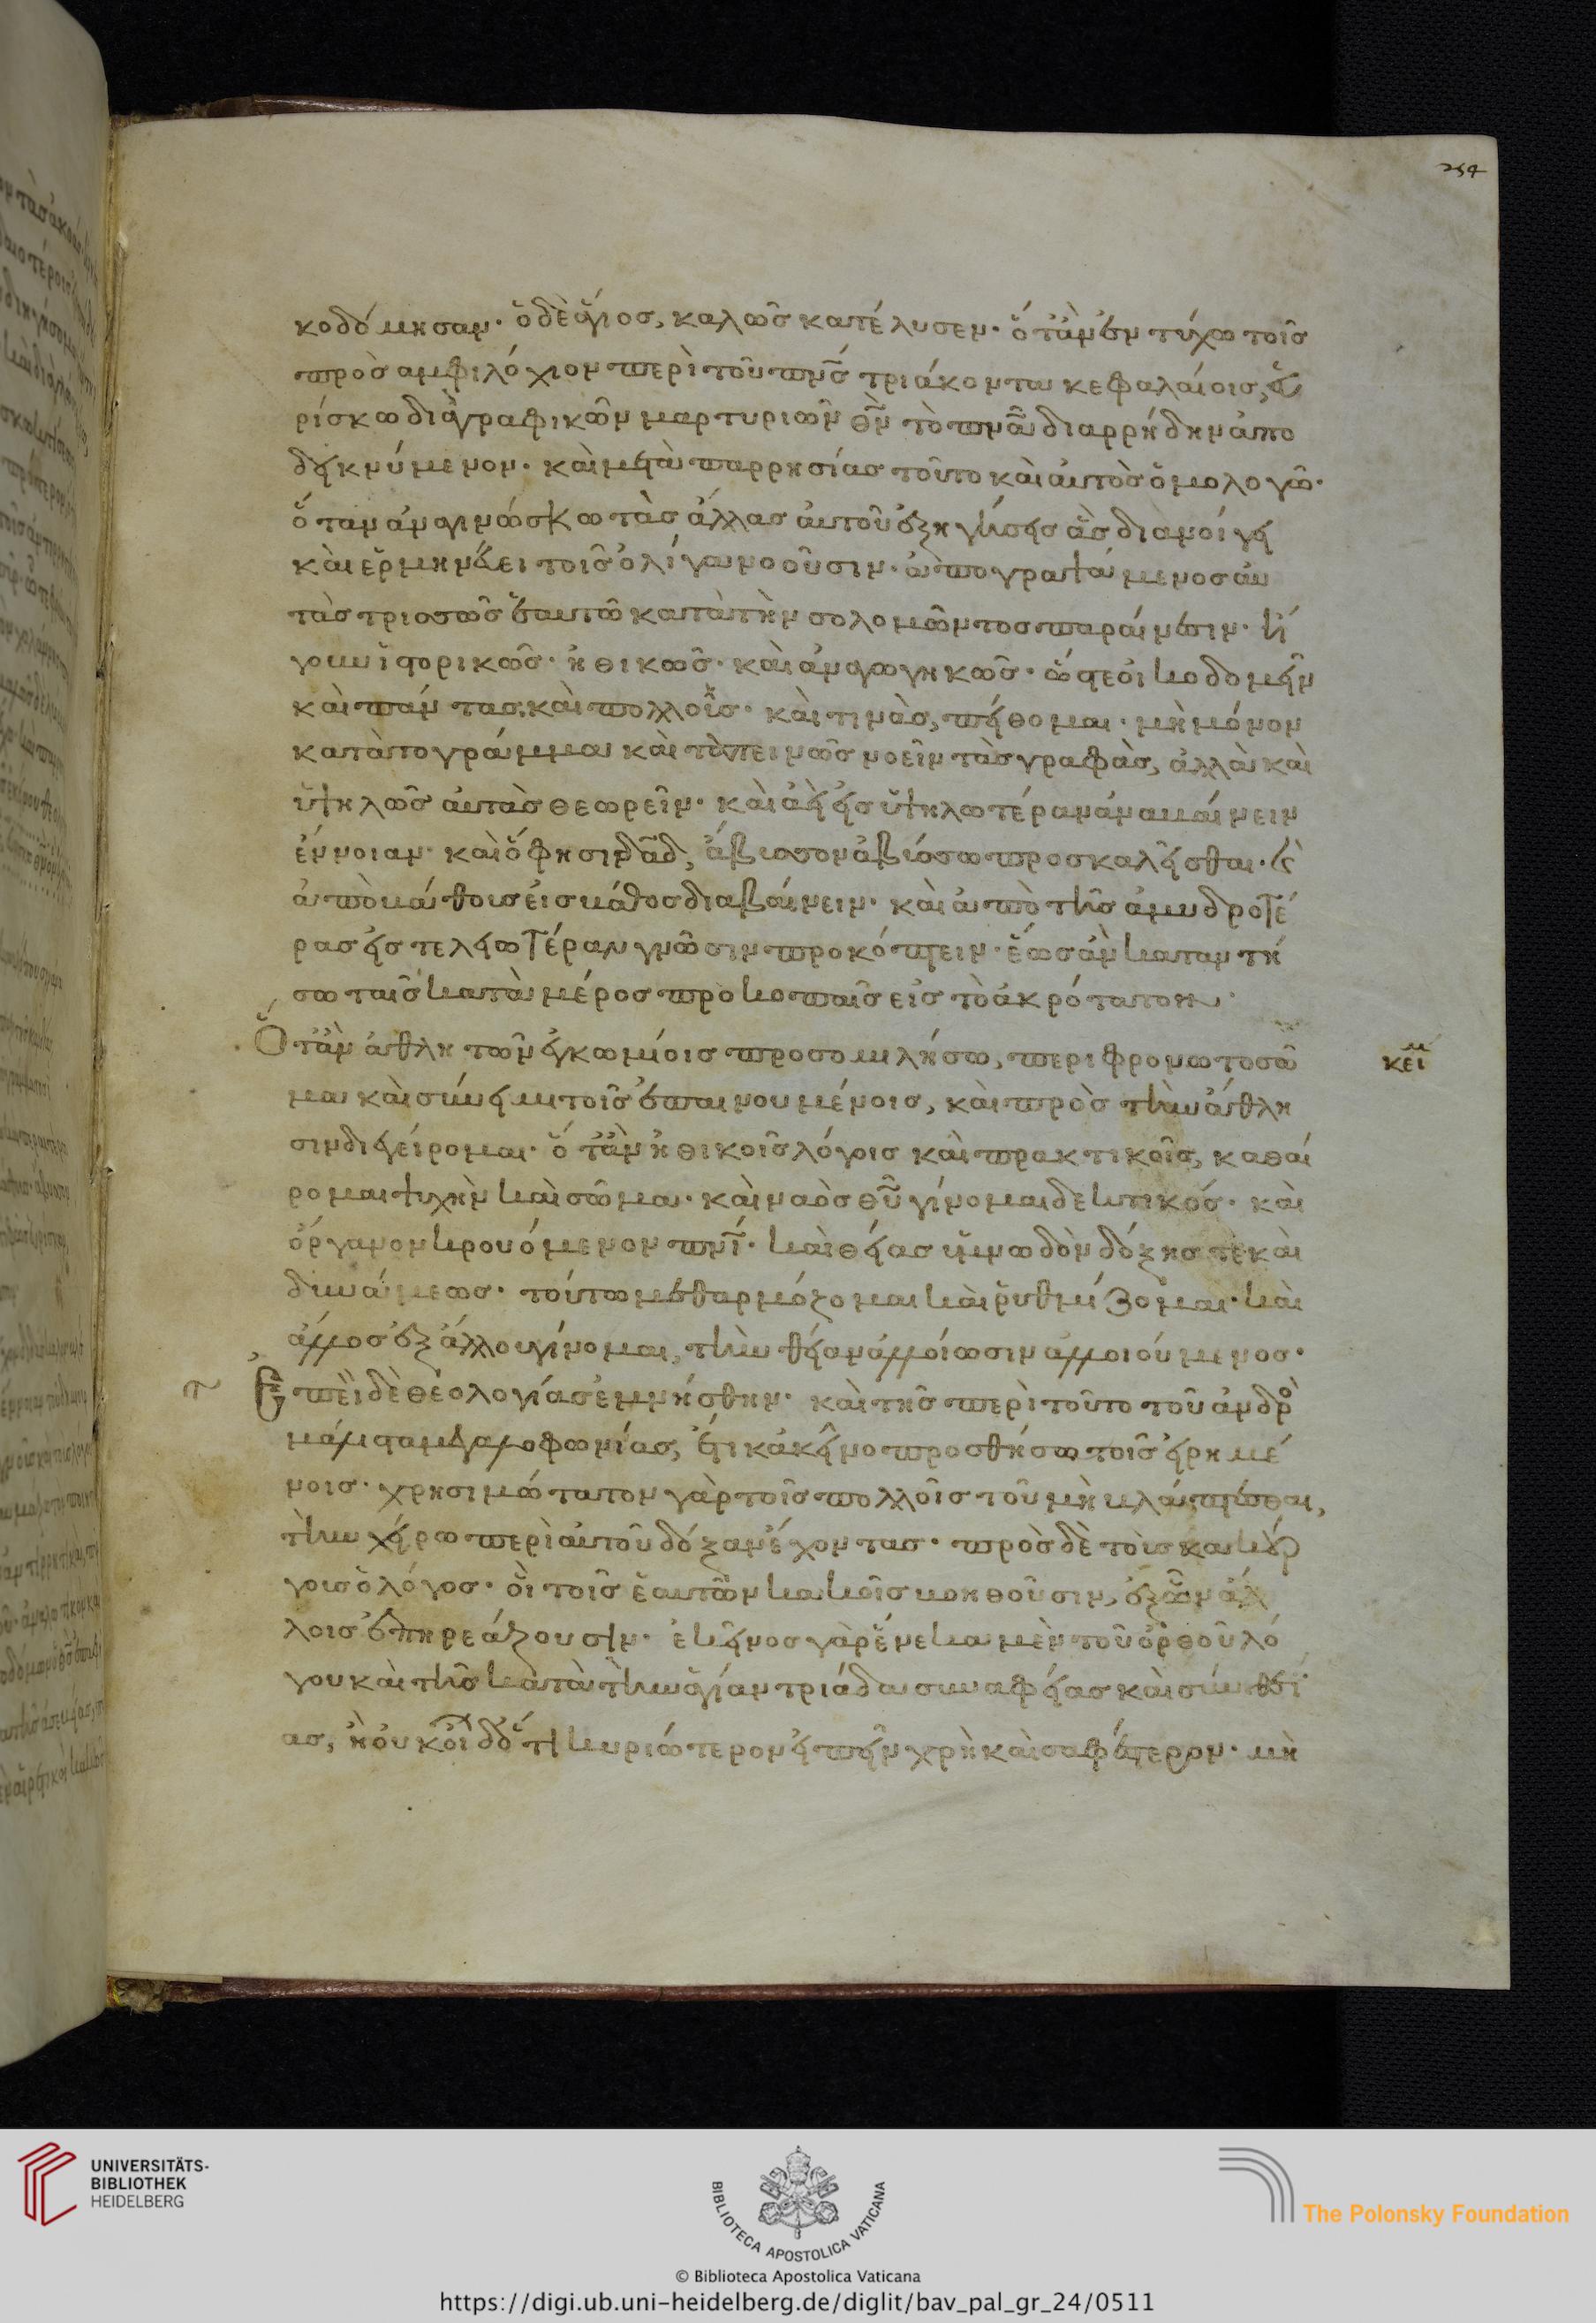 254
κοδόμησαν· ὁ δὲ ἅγιος, καλῶς κατέλυσεν· ὅταν ἐντύχω τοῖς
πρὸς αμφιλόχιον περὶ τοῦ πνς τριάκοντα κεφαλαίοις, εὑ
ρίσκω διὰ γραφικῶν μαρτυριῶν θν τὸ πνα διαρρήδην ἀπο
δεικνύμενον· καὶ μετὰ παρρησίας τοῦτο καὶ αὐτὸς ὁμολογῶ·
ὅταν ἀναγινώσκω τὰς ἄλλας αὐτοῦ ἐξηγήσεις ἃς διανοίγει
καὶ ἑρμηνεύει τοῖς ὀλίγα νοοῦσιν· ἀπογραψάμενος αὐ
τὰς τρισσῶς ἑαυτῶ κατὰ τὴν σολομῶντος παραίνεσιν· ἤ
γουν ἱστορικῶς· ἠθικῶς· καὶ ἀναγωγηκῶς· ὥστε οἰκοδομεῖν
καὶ πάντας, καὶ πολλοῖς· καὶ τινὰς, πείθομαι· μὴ μόνον
κατὰ το γράμμα καὶ ταπεινῶς νοεῖν τὰς γραφὰς, ἀλλὰ καὶ
ὑψηλῶς αὐτὰς θεωρεῖν· καὶ ἀεὶ εἰς ὑψηλωτέραν ἀναβαίνειν
ἔννοιαν· καὶ ὅ φησιν δαδ, ἄβυσσον ἀβύσσω προσκαλεῖσθαι· καὶ
ἀπὸ βάθους εἰς βάθος διαβαίνειν· καὶ ἀπὸ τῆς ἀμυδροτέ
ρας εἰς τελεωτέραν γνῶσιν προκόπτειν· ἕως ἂν καταντή
σω ταῖς κατὰ μέρος προκοπαῖς εἰς τὸ ἀκρότατον·
Ὅταν ἀθλητῶν ἐγκωμίοις προσομιλήσω, περιφρονῶ το σῶ
κεί
μα καὶ σύνειμι τοῖς ἐπαινουμένοις, καὶ πρὸς τὴν ἄθλη
σιν διεγείρομαι· ὅταν ἠθικοῖς λόγοις καὶ πρακτικοῖς, καθαί
ρομαι ψυχὴν καὶ σῶμα· καὶ ναὸς θυ γίνομαι δεκτικός· καὶ
ὄργανον κρουόμενον πνι· καὶ θείας ὑμνωδὸν δόξης τὲ καὶ
δυνάμεως· τούτω μεθαρμόζομαι καὶ ῥυθμίζομαι· καὶ
ἄλλος ἐξ ἄλλου γίνομαι, τὴν θείαν ἀλλοίωσιν ἀλλοιούμενος·
Ἐπεὶ δὲ θεολογίας ἐμνήσθην· καὶ τῆς περὶ τοῦτο τοῦ ἀνδρο
μάλιστα μεγαλοφωνίας, ἔτι κἀκεῖνο προσθήσω τοῖς εἰρημέ
νοις· χρησιμώτατον γὰρ τοῖς πολλοῖς τοῦ μὴ βλάπτεσθαι,
τὴν χείρω περὶ αὐτοῦ δόξαν ἔχοντας· πρὸς δὲ τοὺς κακούρ
γους ὁ λόγος· οἳ τοῖς ἑαυτῶν κακοῖς βοηθοῦσιν, ἐξ ὧν ἀλ
λοις ἐπηρεάζουσιν· ἐκεῖνος γὰρ ἕνεκα μὲν τοῦ ὀρθοῦ λό
γου καὶ τῆς κατὰ τὴν ἁγίαν τριάδα συναφείας καὶ συνθεΐ
ας, ἢ οὐκ οἶδ ὅ τι κυριώτερον εἰπεῖν χρὴ καὶ σαφέστερον· μὴ
UNIVERSITÄTS-
BIBLIOTHEK
HEIDELBERG
BIBLIOTECA APOSTOLICA VATICANA
The Polonsky Foundation
© Biblioteca Apostolica Vaticana
https://digi.ub.uni-heidelberg.de/diglit/bav_pal_gr_24/0511